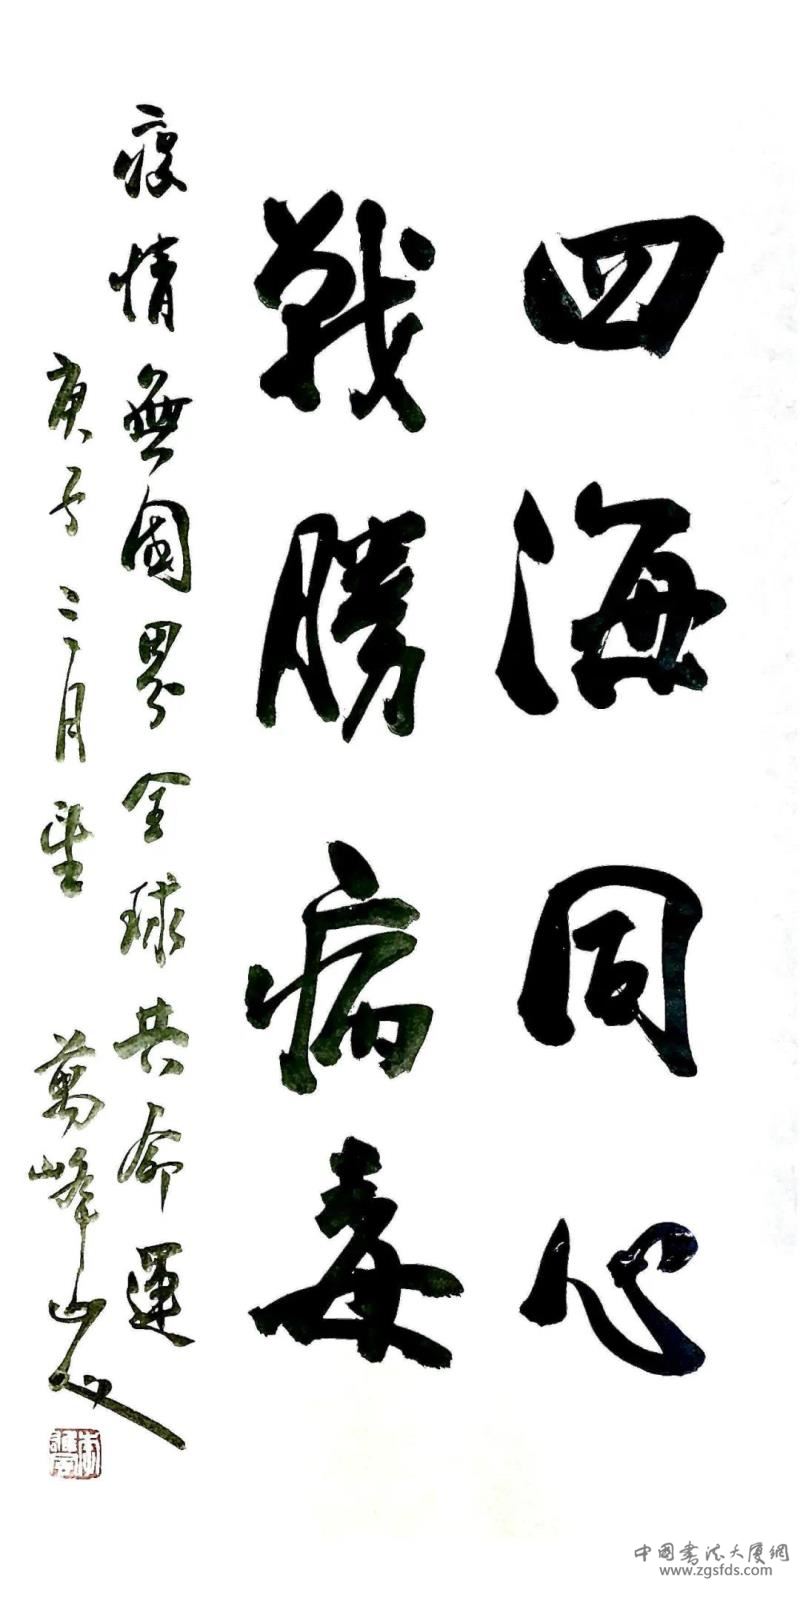 四海同心
戰勝病毒
疫情無國界全球共命運
庚子三月望
萬峰山人
中國書法大廈網
www.zgsfds.com